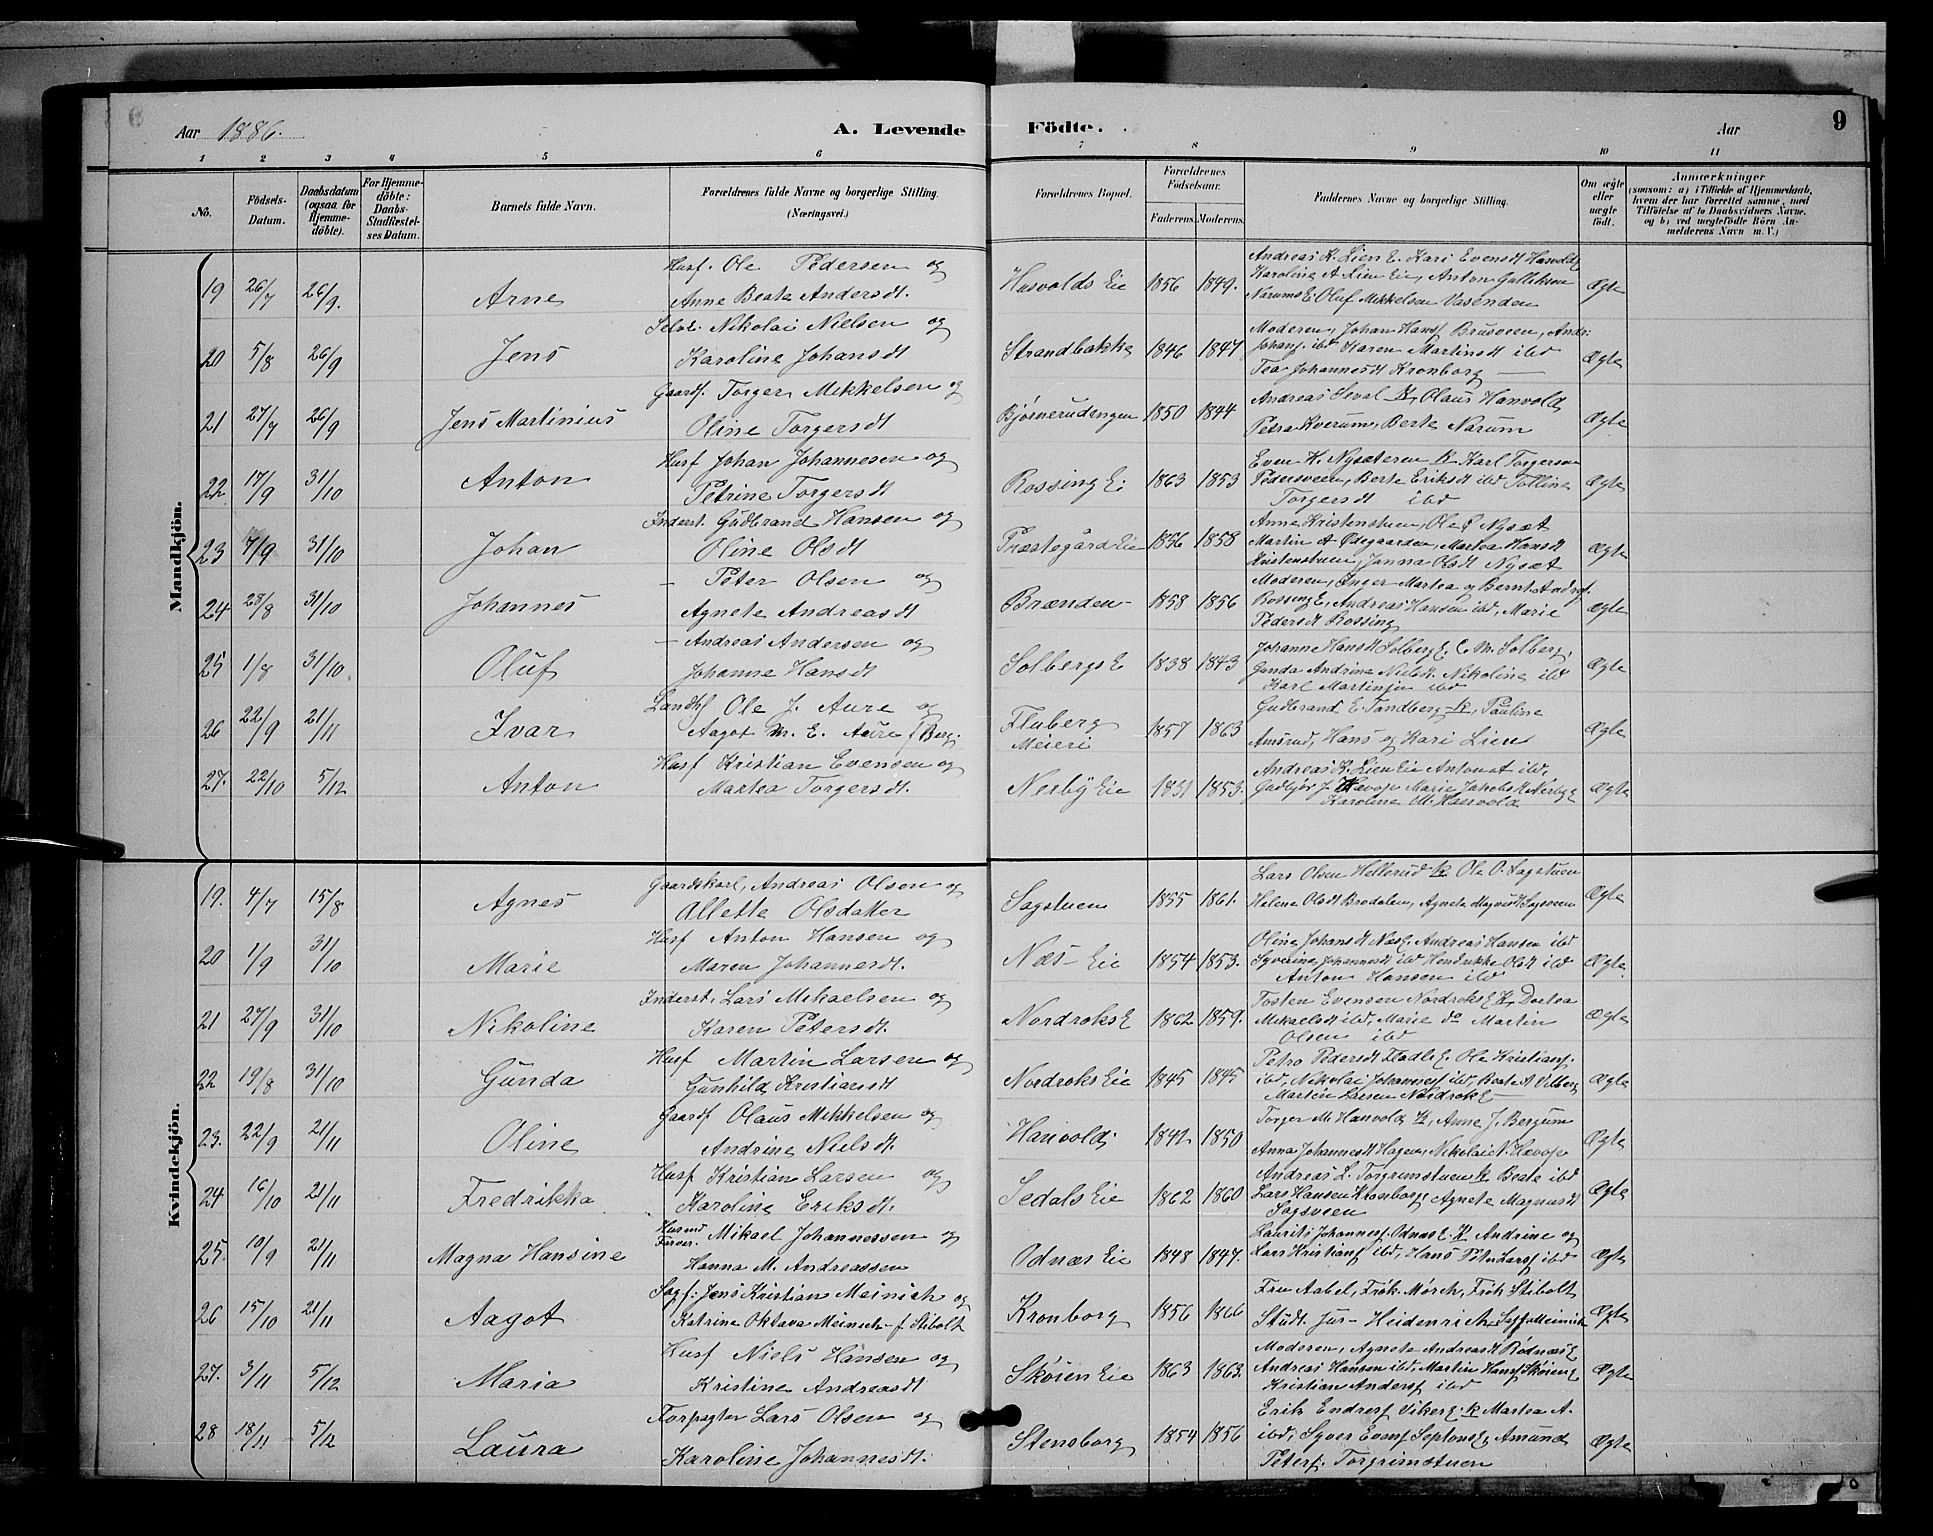 Aar 1886. A. Levende Födte. Aar 9
1 2 3 4 5 6 7 8 9 10 11
No. Födsels-Datum. Daabsdatum (ogsaa for Hjemme-döbte). For Hjemme-döbte: Daabs-Stadfæstel-ses Datum. Barnets fulde Navn. Forældrenes fulde Navne og borgerlige Stilling. (Næringsvei.) Forældrenes Bopæl. Forældrenes Födselsaar. Faderens. Moderens. Faddernes Navne og borgerlige Stilling. Om ægte eller uægte födt. Anmærkninger
(saasom: a) i Tilfælde af Hjemmedaab, hvem der har forrettet samme, med Tilföielse af to Daabsvidners Navne, og b) ved uægtefödte Börn An-melderens Navn m. V.)
Mandkjön.
19 26/7 26/9. Arne Husf. Ole Pedersen og Anne Beate Andersdt. Husvolds Eie 1856 1849. Andreas K. Lien E. Kari Evensdt Hasvolds Karoline A Lien Eie, Anton Gulliksen Narums E. Oluf Mikkelsen Vasenden Ægte
20 5/8 26/9 Jens Selve. Nikolai Nielsen og Karoline Johansdt Strandbakke 1846 1847 Moderen, Johan Hansf Brusveen, Andr. Johansf. ibd Karen Martinsdt ibd Tea Johannesdt Kronborg Ægte
21 27/7 26/9 Jens Martinius Gaardf. Torger Mikkelsen og Oline Torgersdt Bjørnerudengen 1850 1844 Andreas Seval K, Olaus Hanvold Petra Kverum, Berte Narum Ægte
22 17/9 31/10 Anton Husf Johan Johannesen og Petrine Torgersdt Rossing Ei 1863 1853 Even K. Nysæteren K Karl Torgersen Pedersveen, Berte Eriksdt ibd Torgersdt ibd Ægte
23 7/9 31/10 Johan Inderst. Gudbrand Hansen og Oline Olsdt Præstegård Eie 1856 1858 Anne Kristenstuen, Ole P Nysæt Martin A Ødegaarden, Martea Hansdt Kristenstuen, Janna Olsdt Nysæt Ægte
24 28/8 31/10 Johannes - Peter Olsen og Agnete Andreasdt Brænden - 1858 1856 Moderen, Inger Martea og Bernt Andrsf. Rossing E, Andreas Hansen ibd, Marie Pedersdt Rossing Ægte
25 1/8 31/10. Oluf - Andreas Andersen og Johanne Hansdt Solbergs E 1838 1843 Johanne Hansdt Solberg E. C. M. Solberg. Gunda Andrine Nielsdt. Nikoline ibd Karl Martinsen ibd Ægte
26 22/9 21/11 Ivar Landhf Ole J. Aure og Aagot M. E. Aure f Berg. Fluberg Meieri 1857 1863 Gudbrand E. Tandberg K, Pauline Amsrud, Hans og Kari Lien Ægte
27. 22/10 5/12 Anton Husf Kristian Evensen og Martea Torgersdt. Nerby Eie 1831 1853. Andreas K. Lien Eie Anton A ibd. Gudbjør J. Marie Jakobsdt Nerby E Karoline M. Hasvold Ægte
Kvindekjön.
19. 4/7 15/8 Agnes Gaardskarl, Andreas Olsen og Allette Olsdatter Sagstuen 1855 1861. Lars Olsen Hellerud K Ole O. Sagstuen Helene Olsdt Brodalen, Agnete Magnusdt Sagsveen Ægte
20 1/9 31/10 Marie Husf Anton Hansen og Maren Johannesdt. Næs - Eie 1854 1853. Oline Johansdt Næs E. Andreas Hansen ibd Syverine Johannesdt ibd Hendrikke Olsdt ibd Anton Hansen ibd Ægte
21 27/9 31/10 Nikoline Inderst. Lars Mikaelsen og Karen Petersdt. Nordroks E 1862 1859. Tosten Evensen Nordroks E K, Dortea Mikaelsdt ibd, Marie do Martin Olsen ibd Ægte
22 19/8 31/10 Gunda Husf Martin Larsen og Gunhild Kristiansdt Nordroks Eie 1845 1845 Petro Pedersdt Fladls E. Ole Kristiansf. ibd, Nikolai Johannesf ibd, Beate Martin Larsen Nordroks E Ægte
23. 22/9 21/11 Oline Gaardf Olaus Mikkelsen og Andrine Nielsdt. Hanvold 1842 1850 Torger M. Hanvold K, Anne J. Bergum Anna Johannesdt Hagen, Nikolai N. Ægte
24 16/10 21/11 Fredrikka Husf Kristian Larsen og Karoline Eriksdt. Sedals Eie 1862 1860 Andreas L. Torgrimstuen K Beate ibd Lars Hansen Kronborg Agnete Magnusdt Sagsveen Ægte
25. 10/9 21/11 Magna Hansine Husmd Farver. Mikael Johannessen og Hanna M. Andreassen Odnæs Eie 1848 1847. Laurits Johannesf. Odnæs E. K Andrine og Lars Kristiansf ibd, Hans Peter Larsf ibd Ægte
26 15/10 21/11 Aagot Sagf. Jens Kristian Meinich og Katrine Oktava Meinich f Stibolt Kronborg 1856 1866 Fru Aabel, Frøk. Mørch, Frøk Stibolt Studt. Jur - Heidenrich, Meinich Ægte
27. 3/11 5/12 Maria Husf Niels Hansen og Kristine Andreasdt Skøien Eie 1863 1863. Moderen, Agnete Andreasdt Rødnæs E Andreas Hansen ibd, Martin Hansf Skøien E Kristian Andersf ibd Ægte
28 18/11 5/12 Laura Forpagter Lars Olsen og Karoline Johannesdt. Stensborg 1854 1856 Erik Endresf Viker E. K Martea A. ibd, Syver Evensf Amund Petersf. Torgrimstuen Ægte